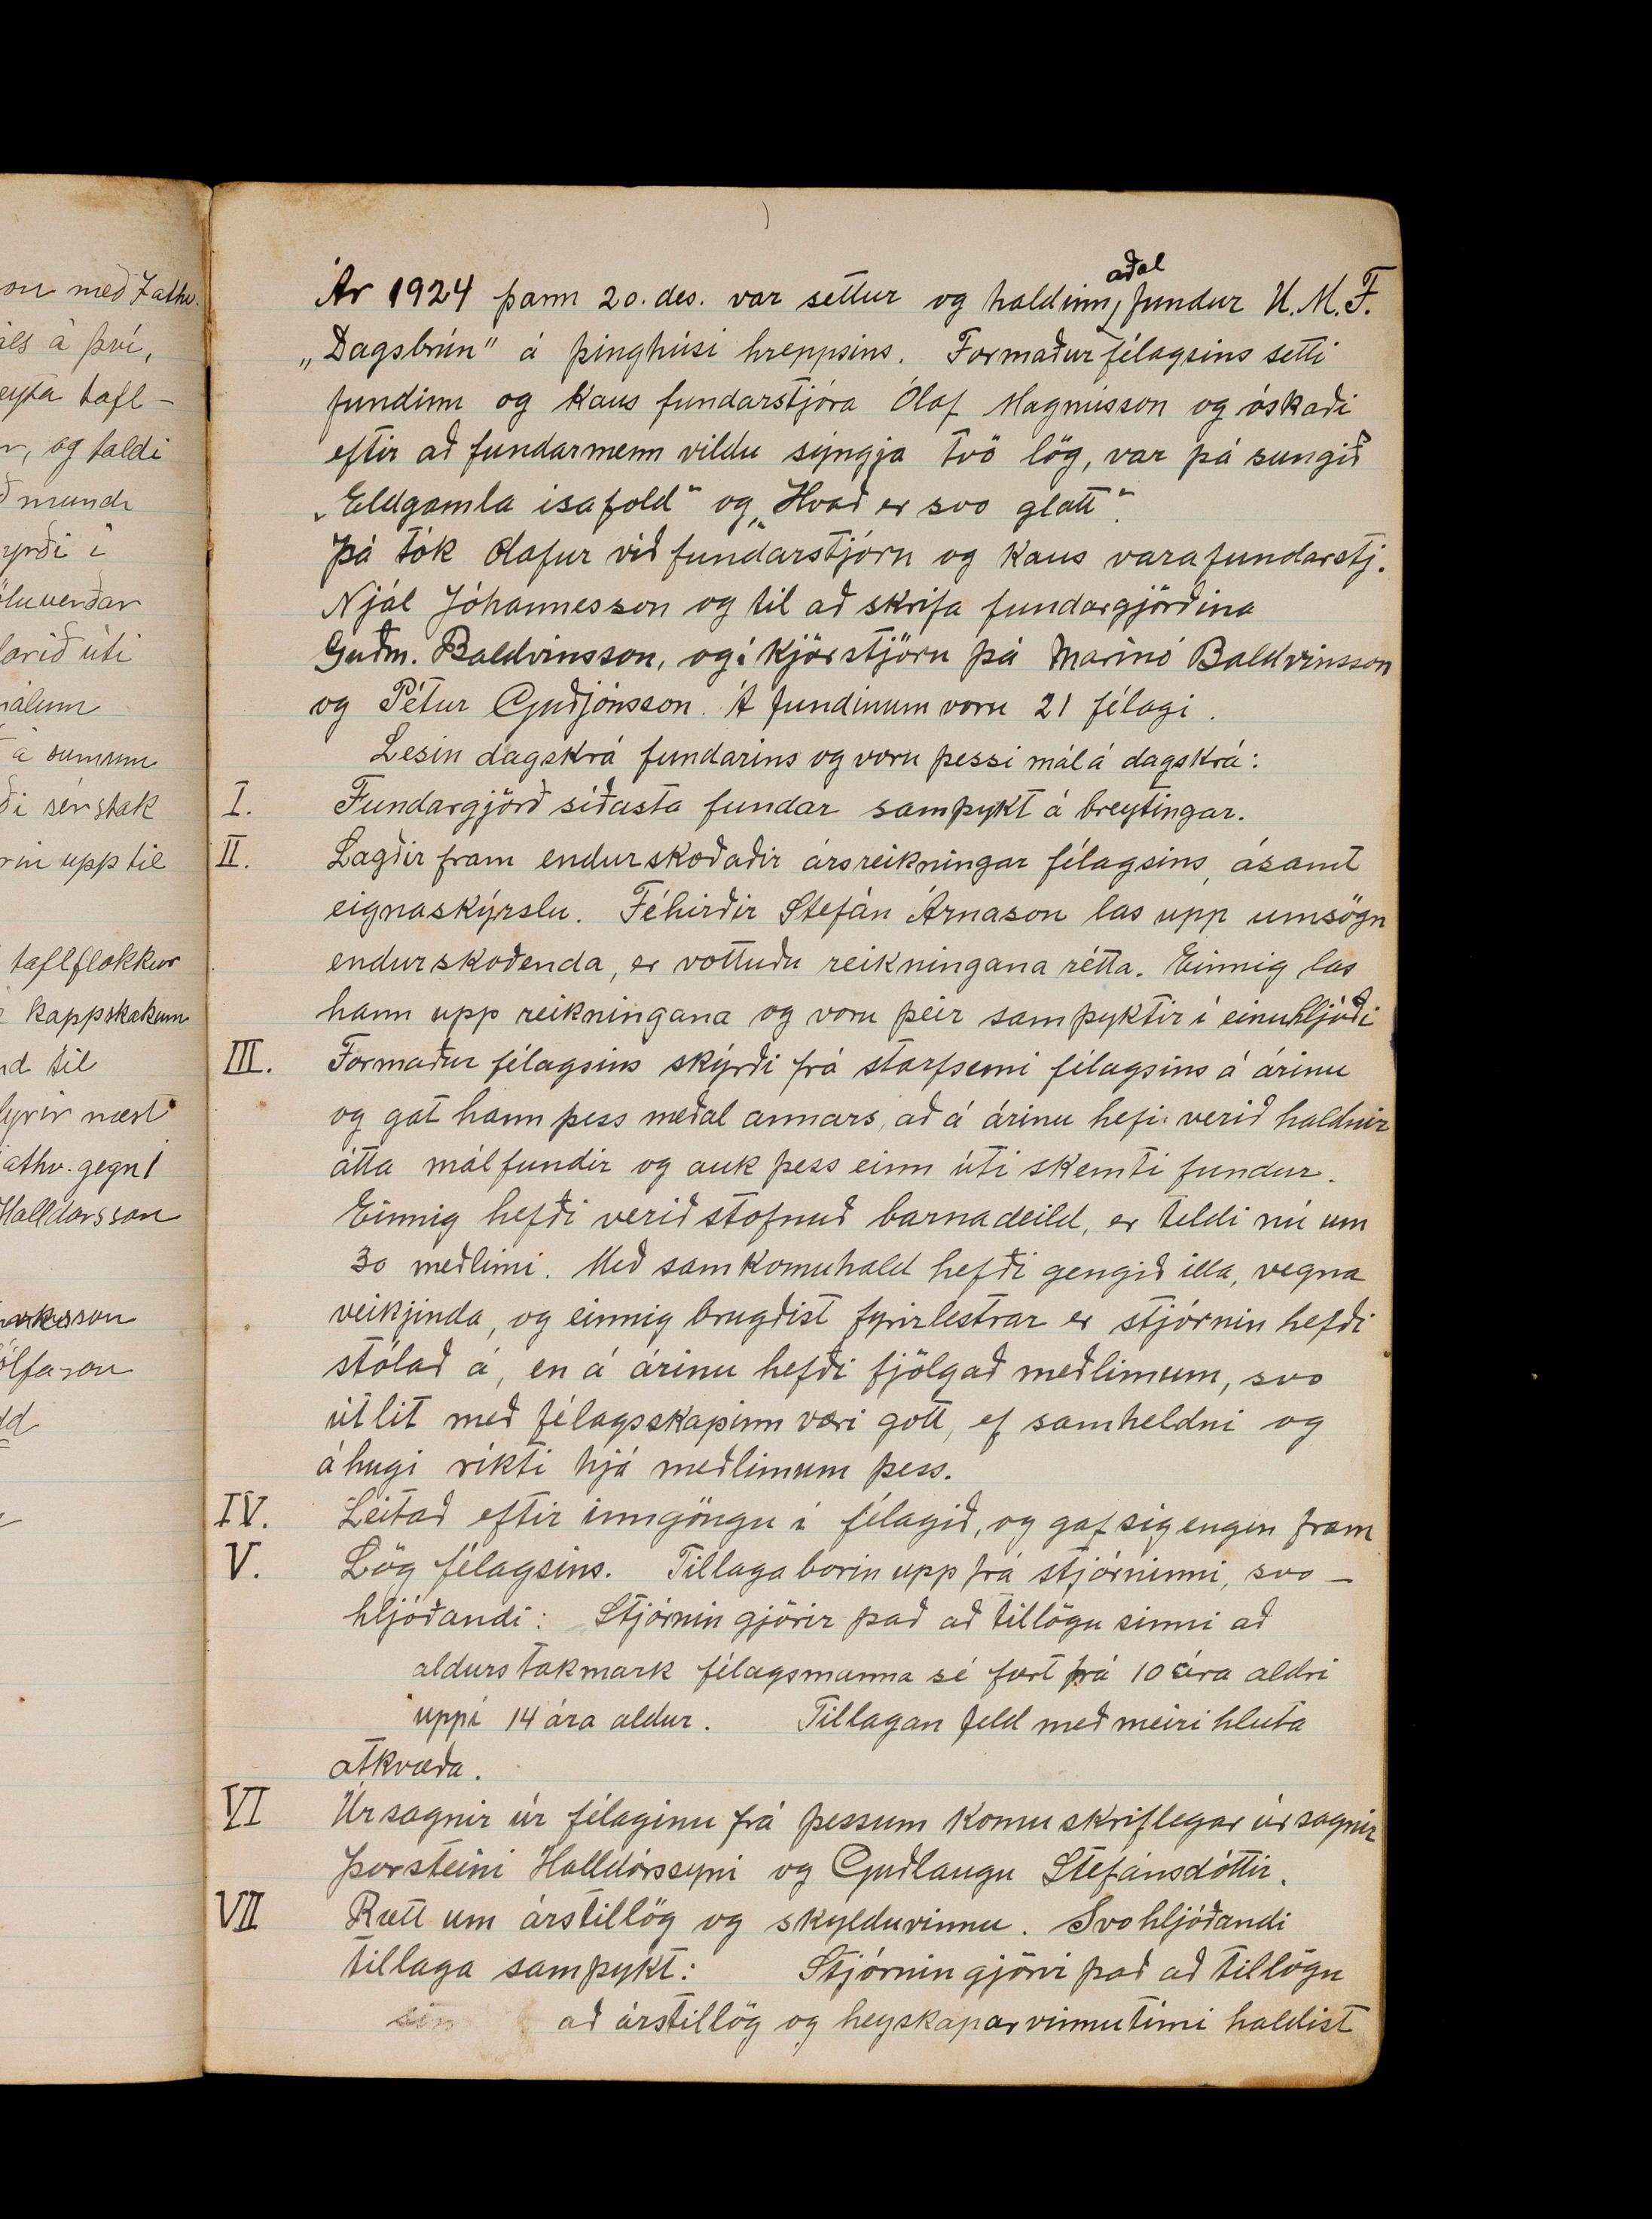 on með 7 athv.
als á því,
eyta tafl-
r, og taldi
mundi
yrði í
öluverðar
larið úti
málum
á sumum
ði sérstak
rin upp til
taflflokkur
kappskákum
nd til
fyrir næst
athv. gegn 1
Halldórsson
ólfsson
Ár 1924 þann 20. des. var settur og haldinn, aðal fundur U.M.F.
„Dagsbrún" á þinghúsi hreppsins. Formaður félagsins setti
fundinn og kaus fundarstjóra Ólaf Magnússon og óskaði
eftir að fundarmenn vildu sýngja tvö lög, var þá sungið
„Eldgamla ísafold" og „Hvað er svo glatt".
Þá tók Ólafur við fundarstjórn og kaus varafundarstj.
Njál Jóhannesson og til að skrifa fundargjörðina
Guðm. Baldvinsson, og í kjörstjórn þá Marinó Baldvinsson
og Pétur Guðjónsson. Á fundinum voru 21 félagi.
Lesin dagskrá fundarins og voru þessi mál á dagskrá:
I. Fundargjörð síðasta fundar samþykt á breytingar.
II. Lagðir fram endurskoðaðir ársreikningar félagsins, ásamt
eignaskýrslu. Féhirðir Stefán Árnason las upp umsögn
endurskoðenda, er vottuðu reikningana rétta. Einnig las
hann upp reikningana og voru þeir samþyktir í einuhljóði
III. Formaður félagsins skýrði frá starfsemi félagsins á árinu
og gat hann þess meðal annars, að á árinu hefi verið haldnir
átta málfundir og auk þess einn úti skemti fundur.
Einnig hefði verið stofnuð barnadeild, er teldi nú um
30 meðlimi. Með samkomuhald hefði gengið illa, vegna
veikjinda, og einnig brugðist fyrirlestrar er stjórnin hefði
stólað á, en á árinu hefði fjölgað meðlimum, svo
útlit með félagsskapinn væri gott, ef samheldni og
áhugi ríkti hjá meðlimum þess.
IV. Leitað eftir inngöngu í félagið, og gaf sig engin fram
V. Lög félagsins. Tillaga borin upp frá stjórninni, svo-
hljóðandi: Stjórnin gjörir það að tillögu sinni að
aldurstakmark félagsmanna sé fært frá 10 ára aldri
uppí 14 ára aldur. Tillagan feld með meiri hluta
atkvæða.
VI Úrsagnir úr félaginu frá þessum komu skriflegar úrsagnir
Þorsteini Halldórssyni og Guðlaugu Stefánsdóttir.
VII Rætt um árstillög og skylduvinnu. Svohljóðandi
tillaga samþykt: Stjórnin gjörvi það að tillögu
sin að árstillög og heyskaparvinnutími haldist